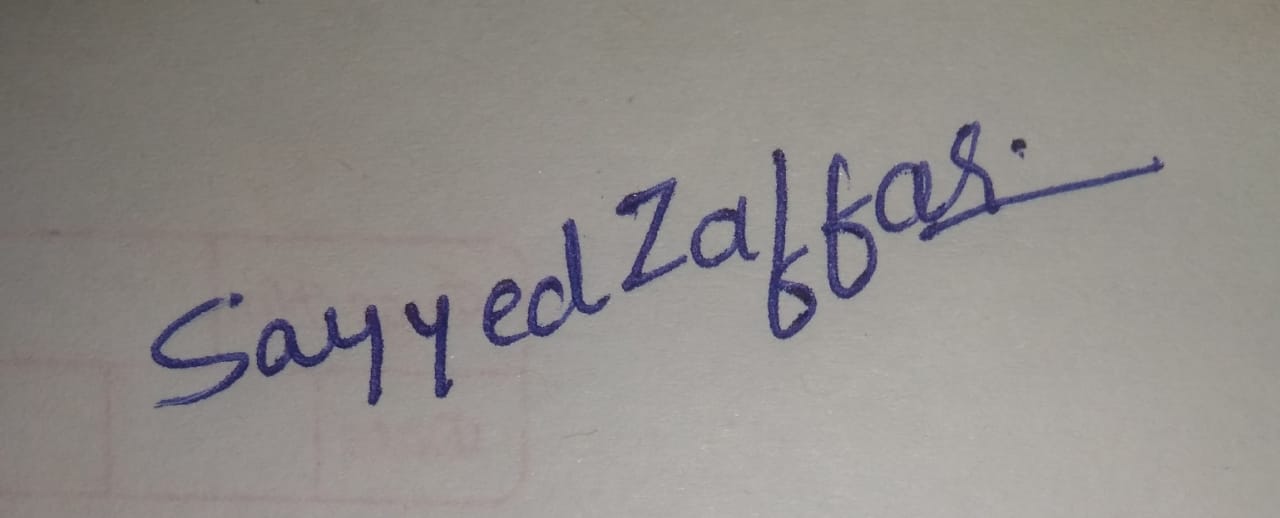 Sayyed Zaffar.